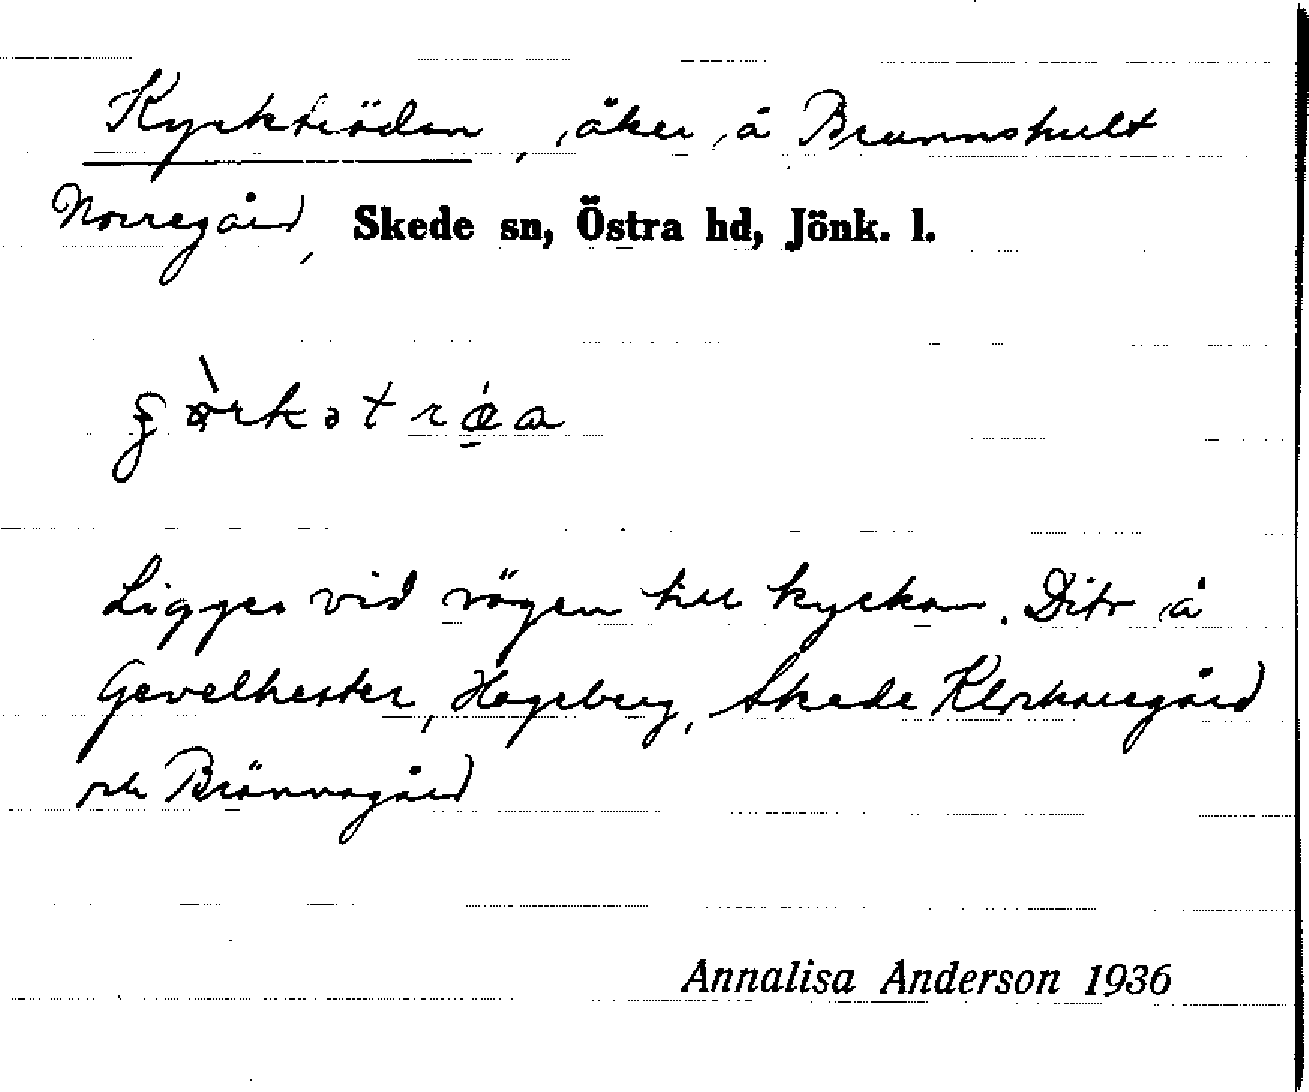 Kyrkträdan, åker å Brunnshult
Norregård, Skede sn, Östra hd, Jönk. l.
Ligger vid vägen till kyrkan. Dito å
Gevelhester, Hageberg, Skede Klockaregård
och Brännagård
Annalisa Anderson 1936